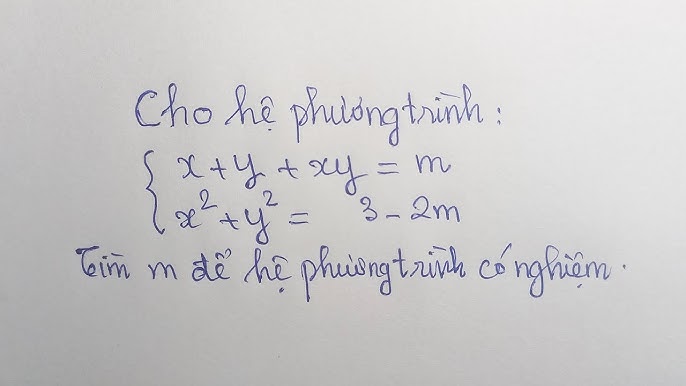 Cho hệ phương trình:
{ x + y + xy = m
x² + y² = 3 - 2m
Tìm m để hệ phương trình có nghiệm.